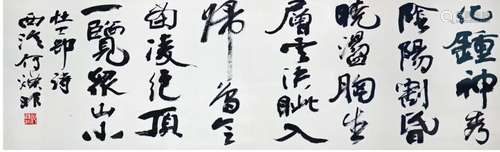 化鍾神秀
陰陽割昏
曉盪胸生
層雲決眦入
歸鳥會
當凌絕頂
一覽眾山小
杜工部詩
西泠何滌非